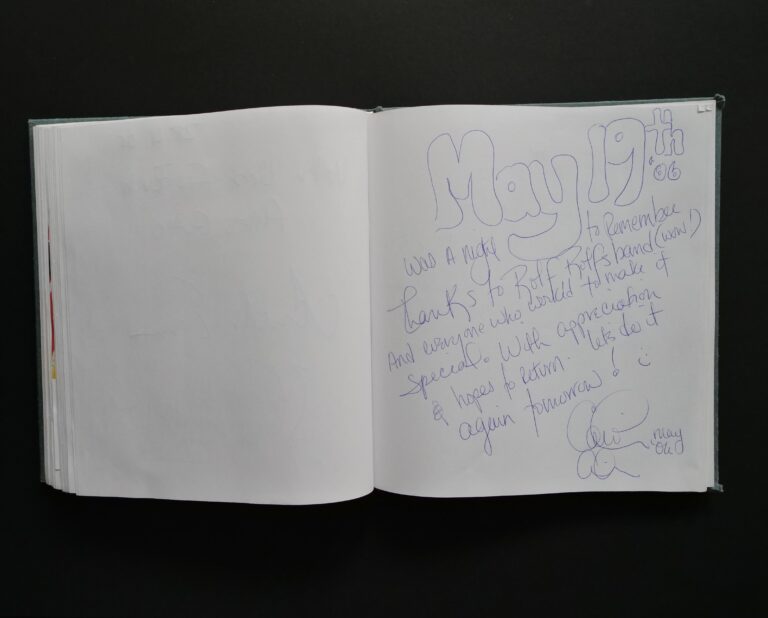 May 19th '06
was a night to Remember
thanks to Rolf Rolfsband (wow!)
And everyone who world to make it
special. With appreciation
& hopes to return. lets do it
again tomorrow! ☺
May 06